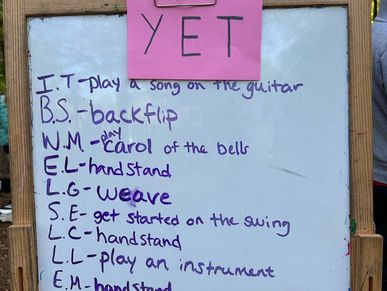 YET
I.T-play a song on the guitar
B.S.-backflip
W.M-play carol of the bells
E.L-handstand
L.G-weave
S.E-get started on the swing
L.C-handstand
L.L-play an instrument
E.M-handstand